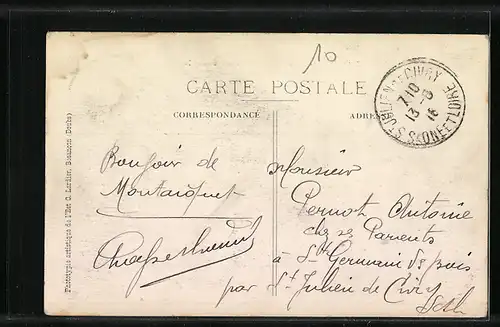 10
CARTE POSTALE
CORRESPONDANCE
ADRES
ST JULIEN DE CIVRY
7-10
13-8
16
SAONE ET LOIRE
Bonjour de
Monsieur
Pernot Antoine
chez ses Parents
à St Germain des bois
par St Julien de Civry
S&L
Phototypie artistique de l'Edit. C. Lardier, Besançon (Doubs)